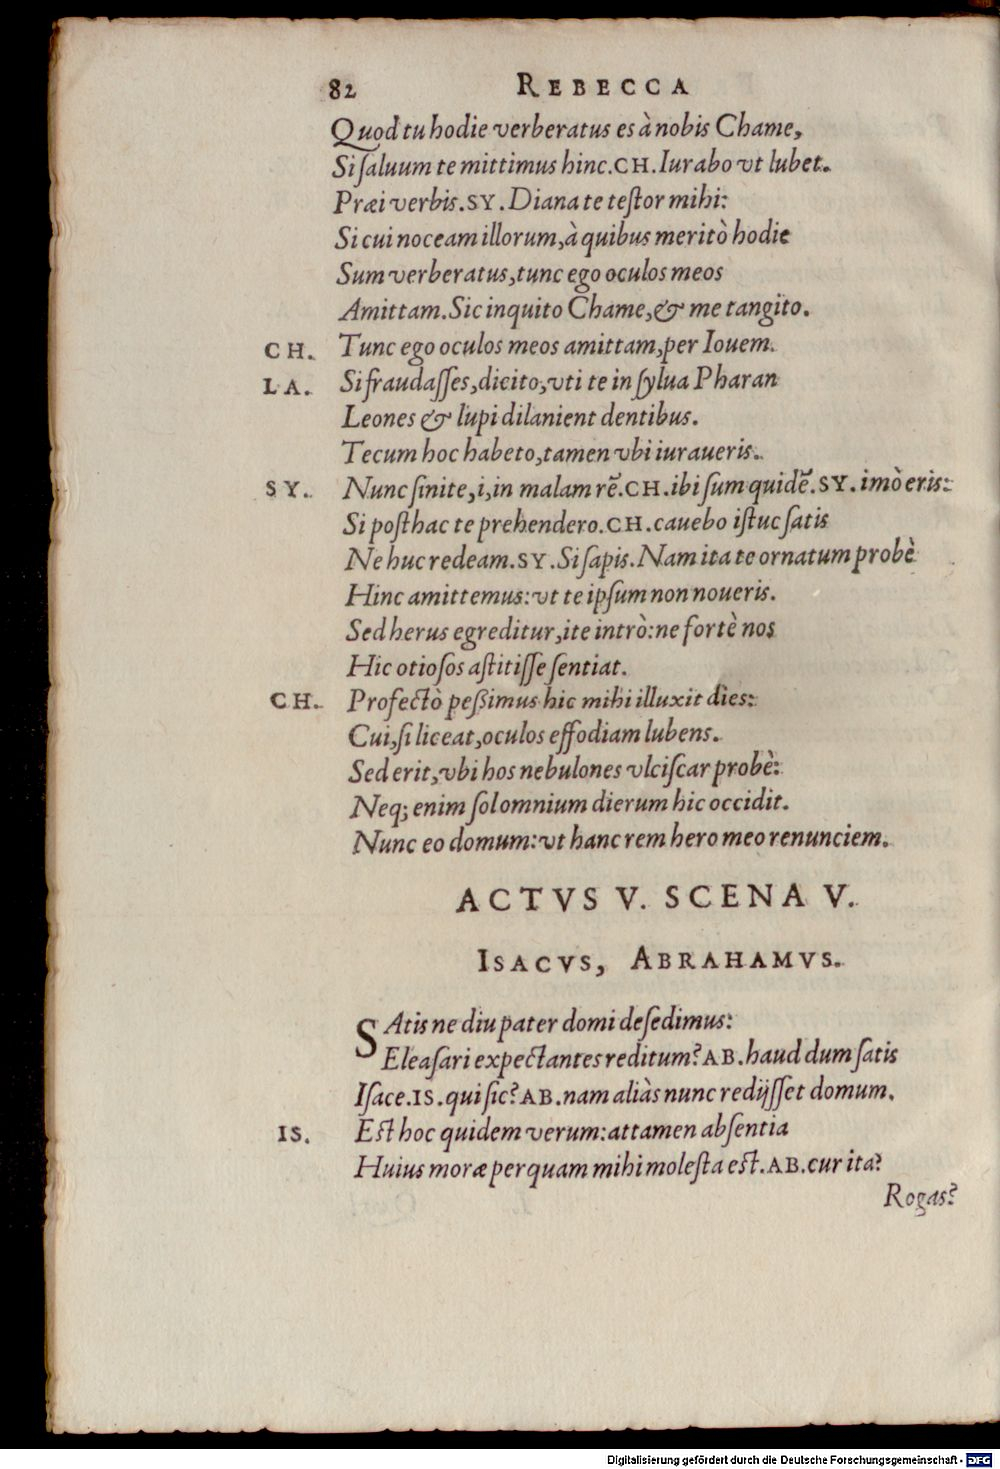 82 REBECCA
Quod tu hodie verberatus es à nobis Chame,
Si ſaluum te mittimus hinc. CH. Iurabo vt lubet.
Præi verbis. SY. Diana te teſtor mihi:
Si cui noceam illorum, à quibus meritò hodie
Sum verberatus, tunc ego oculos meos
Amittam. Sic inquito Chame, & me tangito.
CH. Tunc ego oculos meos amittam, per Iouem.
LA. Si fraudaſſes, dicito, vti te in ſylua Pharan
Leones & lupi dilanient dentibus.
Tecum hoc habeto, tamen vbi iuraueris.
SY. Nunc ſinite, i, in malam rē. CH. ibi ſum quidē. SY. imò eris:
Si poſthac te prehendero. CH. cauebo iſtuc ſatis
Ne huc redeam. SY. Si ſapis. Nam ita te ornatum probè
Hinc amittemus: vt te ipſum non noueris.
Sed herus egreditur, ite intrò: ne fortè nos
Hic otioſos aſtitiſſe ſentiat.
CH. Profectò peßimus hic mihi illuxit dies:
Cui, ſi liceat, oculos effodiam lubens.
Sed erit, vbi hos nebulones vlciſcar probè:
Neq; enim ſol omnium dierum hic occidit.
Nunc eo domum: vt hanc rem hero meo renunciem.
ACTVS V. SCENA V.
ISACVS, ABRAHAMVS.
SAtis ne diu pater domi deſedimus:
Eleaſari expectantes reditum? AB. haud dum ſatis
Iſace. IS. qui ſic? AB. nam aliàs nunc redijſſet domum.
IS. Eſt hoc quidem verum: attamen abſentia
Huius moræ perquam mihi moleſta eſt. AB. cur ita?
Rogas?
Digitalisierung gefördert durch die Deutsche Forschungsgemeinschaft - DFG